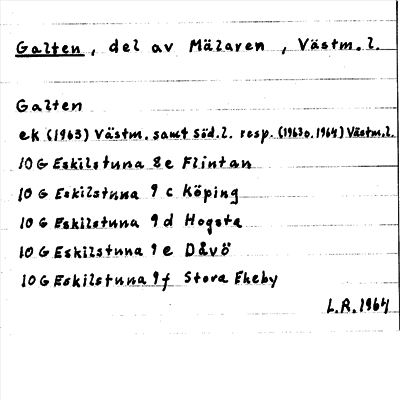 Galten, del av Mälaren, Västm. l.
Galten
ek (1963) Västm. samt Söd. l. resp. (1963 o. 1964) Västm. l.
10 G Eskilstuna 8 e Flintan
10 G Eskilstuna 9 c Köping
10 G Eskilstuna 9 d Hogsta
10 G Eskilstuna 9 e Dåvö
10 G Eskilstuna 9 f Stora Ekeby
L.R. 1964